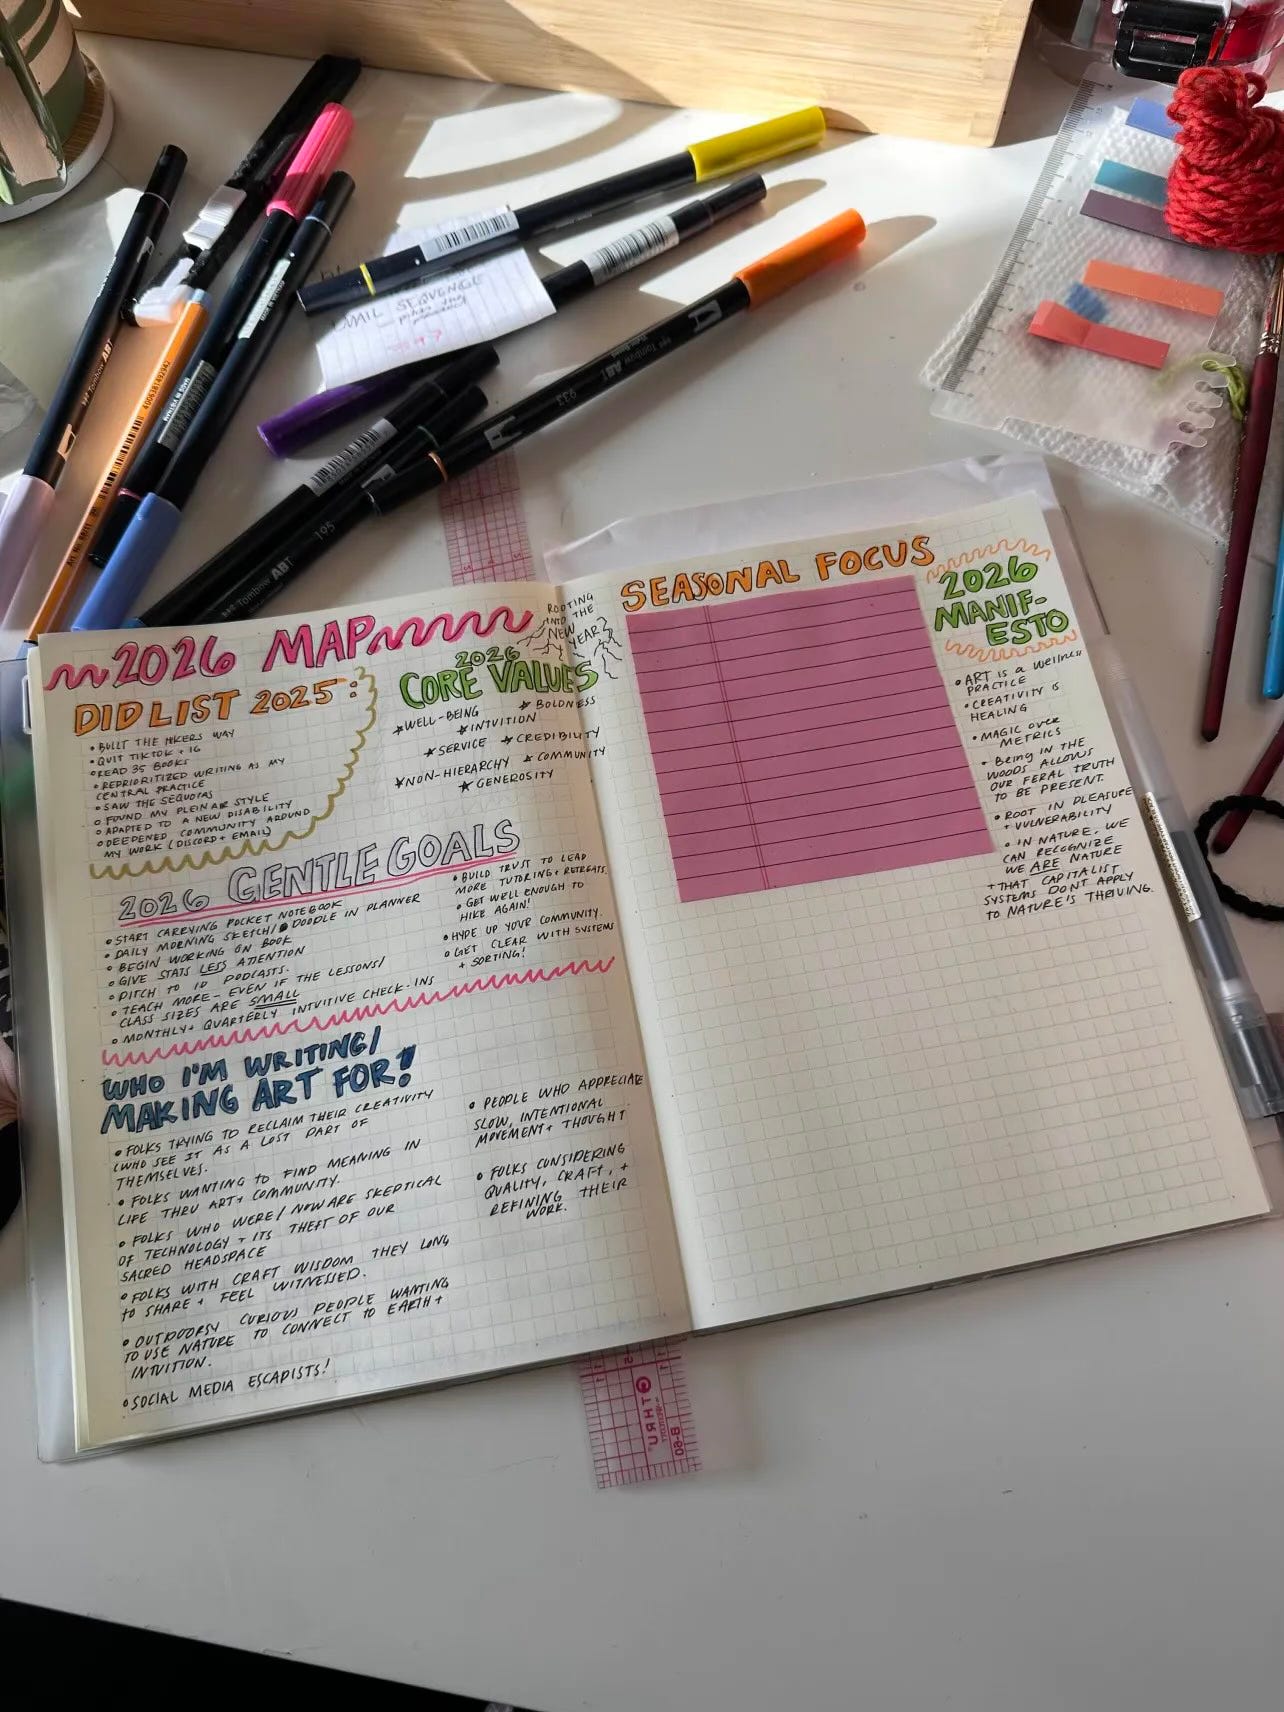 2026 MAP
ROOTING
INTO
THE
NEW
YEAR?
DID LIST 2025:
• BUILT THE HIKERS WAY
• QUIT TIKTOK + IG
• READ 35 BOOKS
• REPRIORITIZED WRITING AS MY
CENTRAL PRACTICE
• SAW THE SEQUOIAS
• FOUND MY PLEIN AIR STYLE
• ADAPTED TO A NEW DISABILITY
• DEEPENED COMMUNITY AROUND
MY WORK (DISCORD + EMAIL)
2026
CORE VALUES
★ WELL-BEING
★ BOLDNESS
★ INTUITION
★ SERVICE
★ CREDIBILITY
★ NON-HIERARCHY
★ COMMUNITY
★ GENEROSITY
2026 GENTLE GOALS
• START CARRYING POCKET NOTEBOOK
• DAILY MORNING SKETCH/ DOODLE IN PLANNER
• BEGIN WORKING ON BOOK
• GIVE STATS LESS ATTENTION
• PITCH TO 10 PODCASTS.
• TEACH MORE - EVEN IF THE LESSONS/
CLASS SIZES ARE SMALL
• MONTHLY + QUARTERLY INTUITIVE CHECK-INS
• BUILD TRUST TO LEAD
MORE TUTORING + RETREATS.
• GET WELL ENOUGH TO
HIKE AGAIN!
• HYPE UP YOUR COMMUNITY.
• GET CLEAR WITH SYSTEMS
+ SORTING!
WHO I'M WRITING/
MAKING ART FOR?
• FOLKS TRYING TO RECLAIM THEIR CREATIVITY
(WHO SEE IT AS A LOST PART OF
THEMSELVES.
• FOLKS WANTING TO FIND MEANING IN
LIFE THRU ART + COMMUNITY.
• FOLKS WHO WERE/NOW ARE SKEPTICAL
OF TECHNOLOGY + ITS THEFT OF OUR
SACRED HEADSPACE
• FOLKS WITH CRAFT WISDOM THEY LONG
TO SHARE + FEEL WITNESSED.
• OUTDOORSY CURIOUS PEOPLE WANTING
TO USE NATURE TO CONNECT TO EARTH +
INTUITION.
• SOCIAL MEDIA ESCAPISTS!
• PEOPLE WHO APPRECIATE
SLOW, INTENTIONAL
MOVEMENT + THOUGHT
• FOLKS CONSIDERING
QUALITY, CRAFT, +
REFINING THEIR
WORK.
SEASONAL FOCUS
2026
MANIF-
ESTO
• ART IS A WELLNESS
PRACTICE
• CREATIVITY IS
HEALING
• MAGIC OVER
METRICS
• BEING IN THE
WOODS ALLOWS
OUR FERAL TRUTH
TO BE PRESENT.
• ROOT IN PLEASURE
+ VULNERABILITY
• IN NATURE, WE
CAN RECOGNIZE
WE ARE NATURE
+ THAT CAPITALIST
SYSTEMS DON'T APPLY
TO NATURE'S THRIVING.
EMAIL SEQUENCE
Tombow ABT
933
Tombow ABT
195
Tombow ABT
THRU
B-60